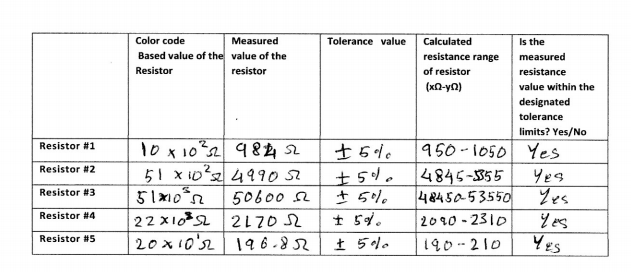 Color code Based value of the Resistor | Measured value of the resistor | Tolerance value | Calculated resistance range of resistor (xΩ-yΩ) | Is the measured resistance value within the designated tolerance limits? Yes/No
Resistor #1 | 10 x 10²Ω | 984 Ω | ± 5% | 950-1050 | Yes
Resistor #2 | 51 x 10²Ω | 4990 Ω | ± 5% | 4845-5355 | Yes
Resistor #3 | 51x10³Ω | 50600 Ω | ± 5% | 48450-53550 | Yes
Resistor #4 | 22 x 10²Ω | 2170 Ω | ± 5% | 2090-2310 | Yes
Resistor #5 | 20 x 10¹Ω | 196.8Ω | ± 5% | 190-210 | Yes